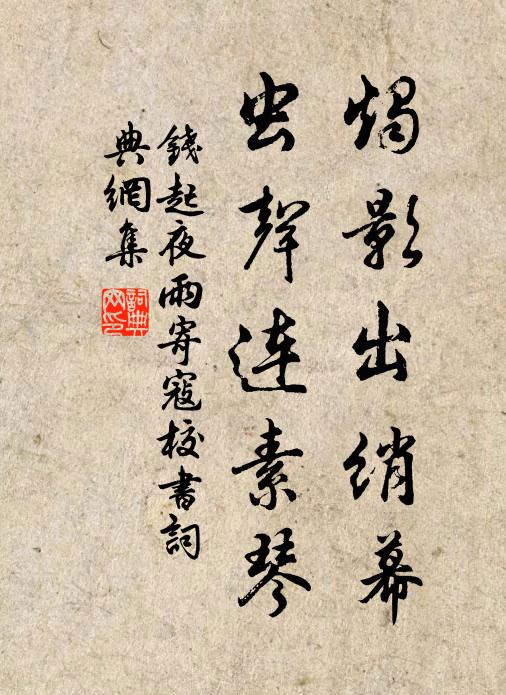 燭影出綃幕
虫聲連素琴
錢起夜雨寄寇校書詞
典網集
詞典
网印